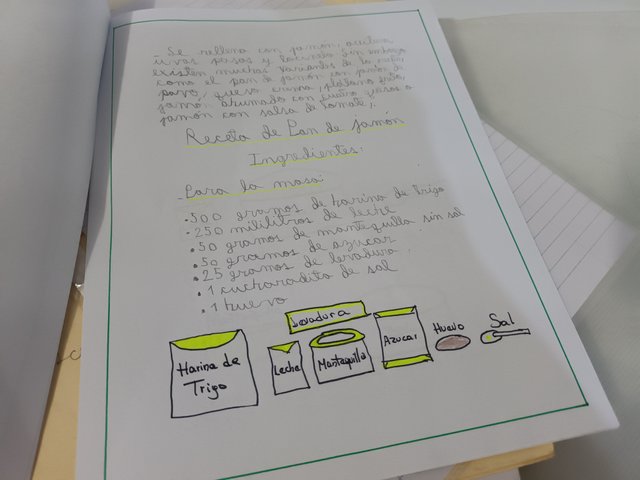 - Se rellena con jamón, aceituna
uvas pasas y tocineta sin embargo
existen muchas variantes de la receta,
como el pan de jamón con jamón de
pavo, queso crema, plátano frito,
jamón ahumado con cuatro quesos o
jamón con salsa de tomate,.
Receta de Pan de Jamón
Ingredientes:
- Para la masa:
• 500 gramos de harina de trigo
• 250 mililitros de leche
• 50 gramos de mantequilla sin sal
• 50 gramos de azucar
• 25 gramos de levadura
• 1 cucharadita de sal
• 1 huevo
Levadura
Harina de
Trigo
Leche
Mantequilla
Azucar
Huevo
Sal